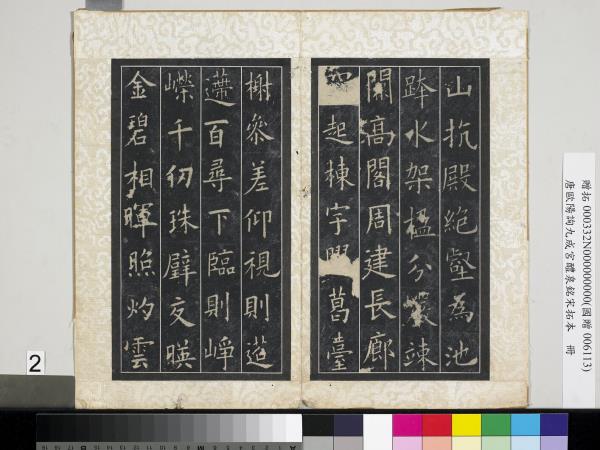 山抗殿絶壑為池
跨水架楹分巖竦
闕高閣周建長廊
四起棟宇葛臺
榭參差仰視則迢
遰百尋下臨則崢
嶸千仞珠璧交暎
金碧相暉照灼雲
贈拓 000332N000000000(國贈 006113)
唐歐陽詢九成宮醴泉銘宋拓本 冊
2